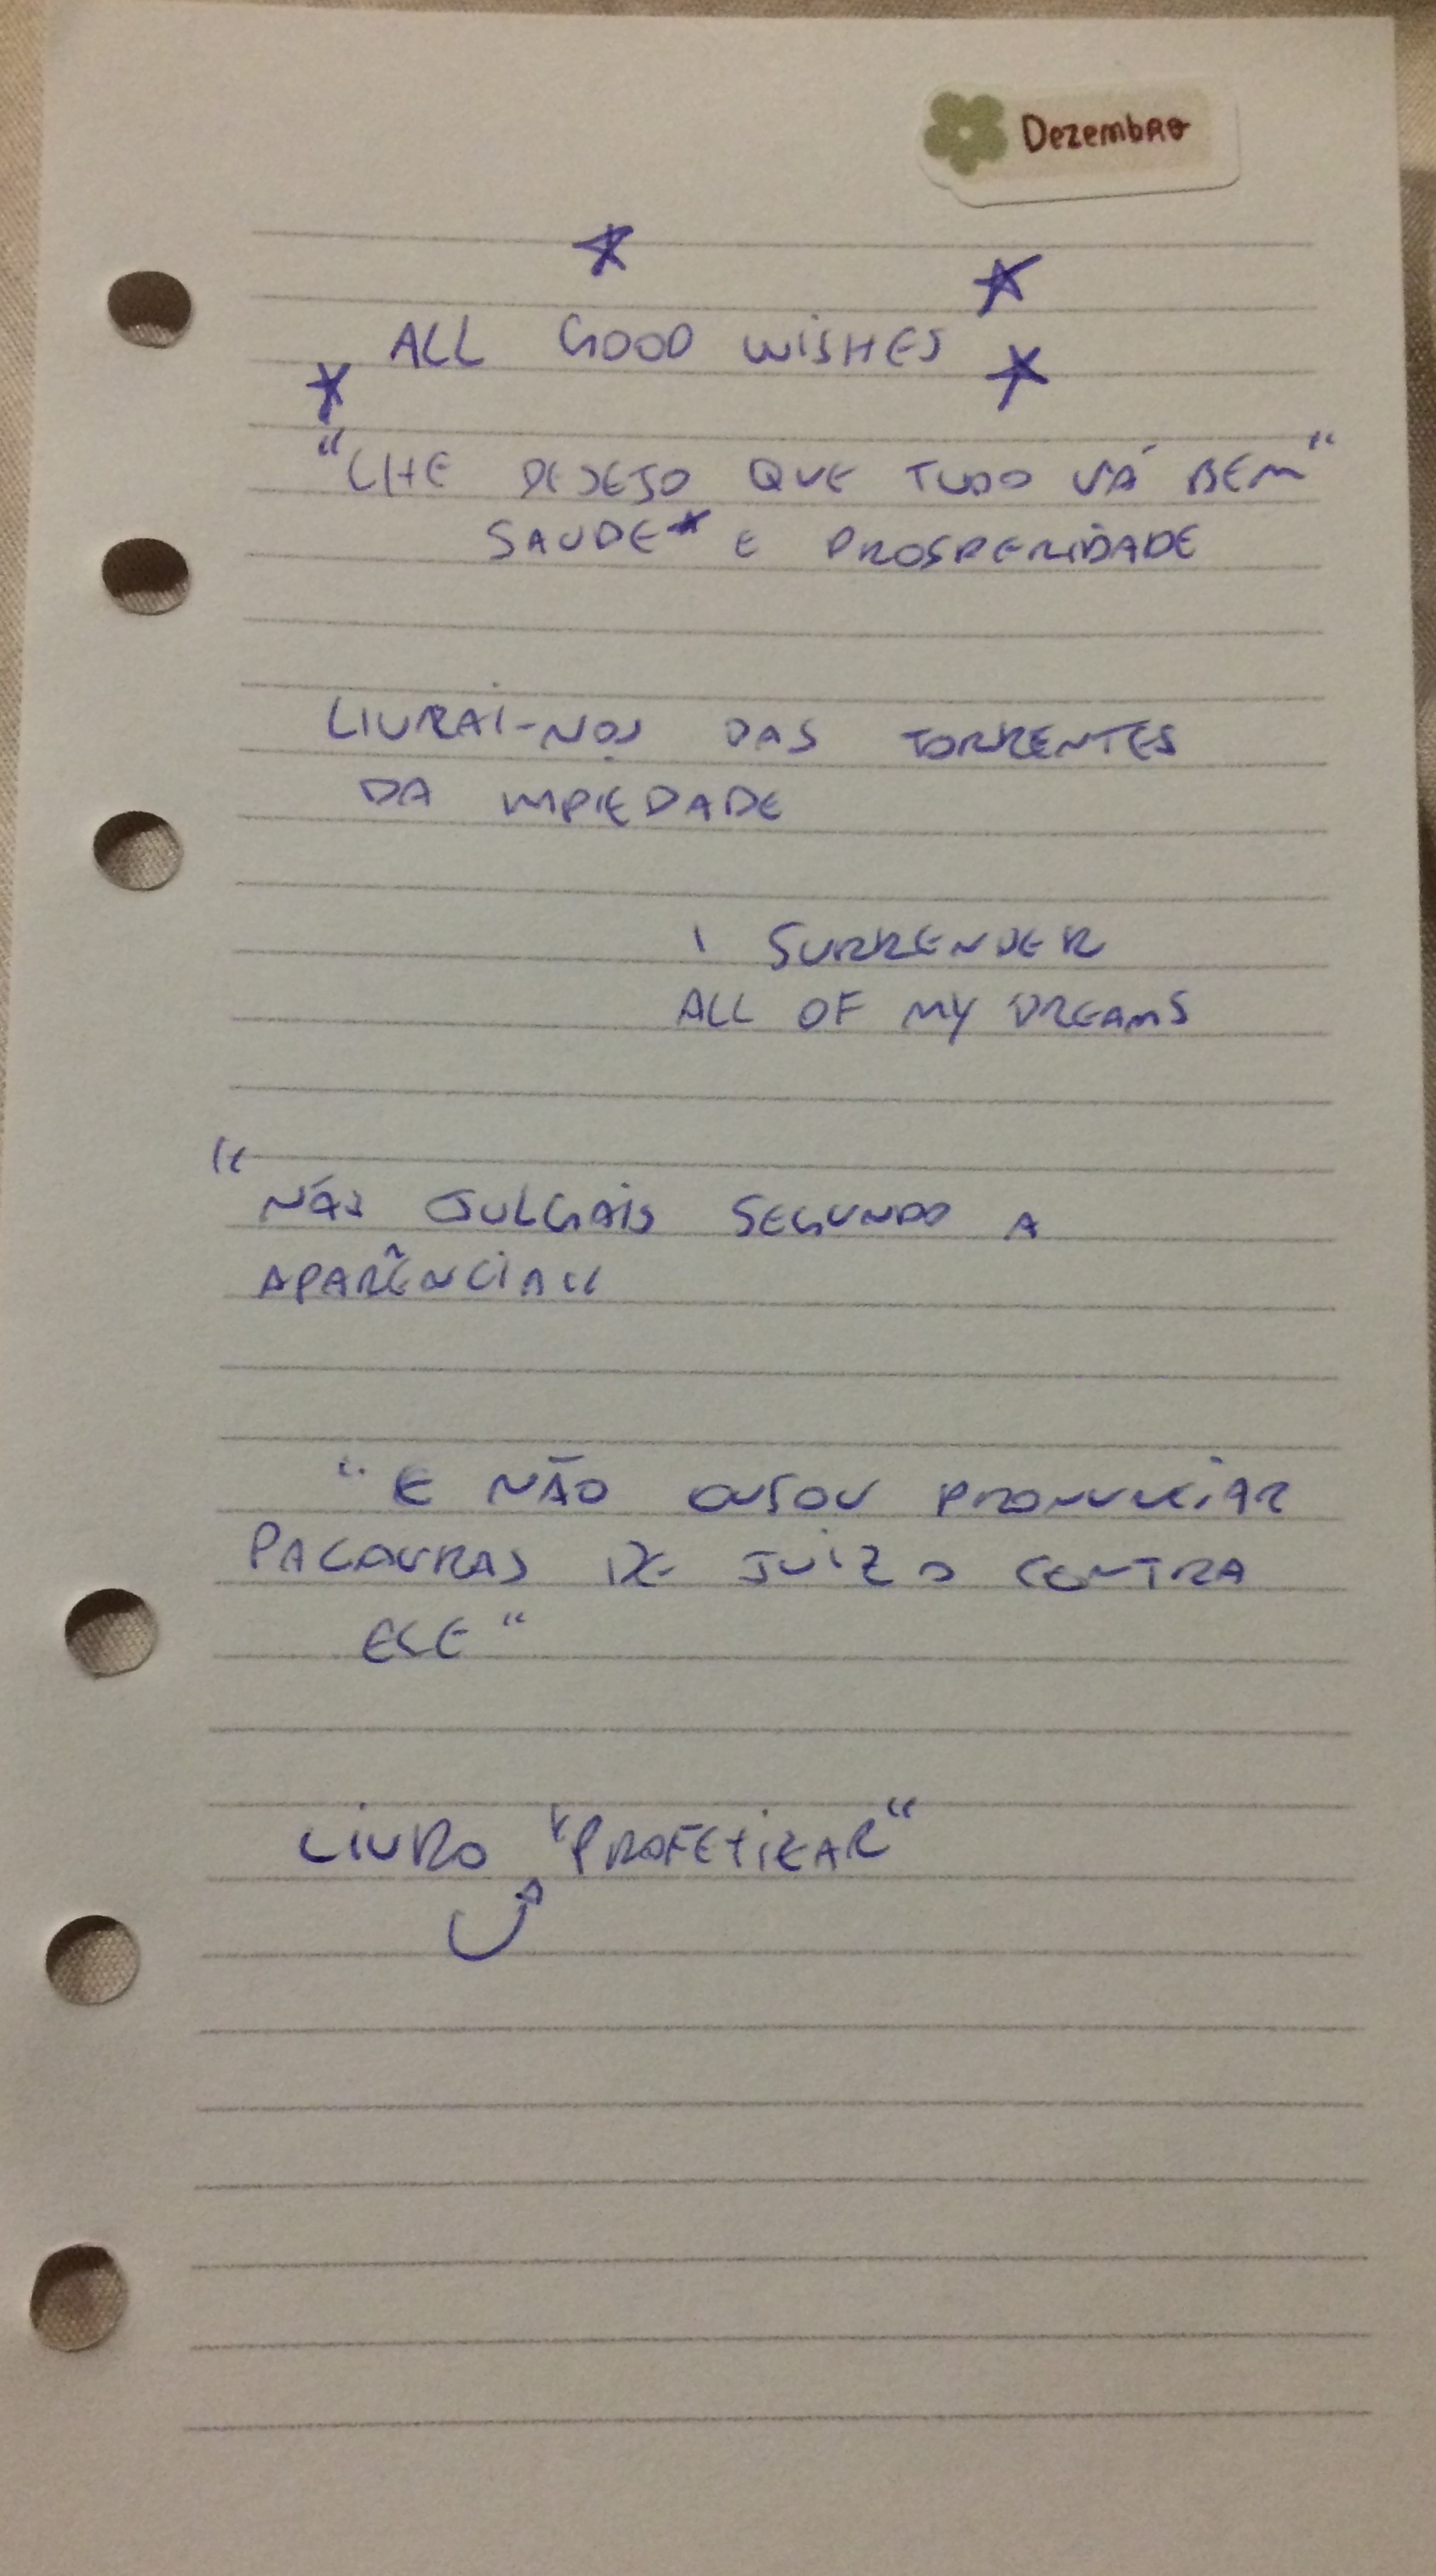 Dezembro
ALL GOOD WISHES
"LHE DESEJO QUE TUDO VÁ BEM"
SAUDE* E PROSPERIDADE
LIVRAI-NOS DAS TORRENTES
DA IMPIEDADE
I SURRENDER
ALL OF MY DREAMS
"NÃO JULGAIS SEGUNDO A
APARÊNCIA"
"E NÃO OUSOU PRONUNCIAR
PALAVRAS DE JUIZO CONTRA
ELE"
LIVRO "PROFETIZAR"